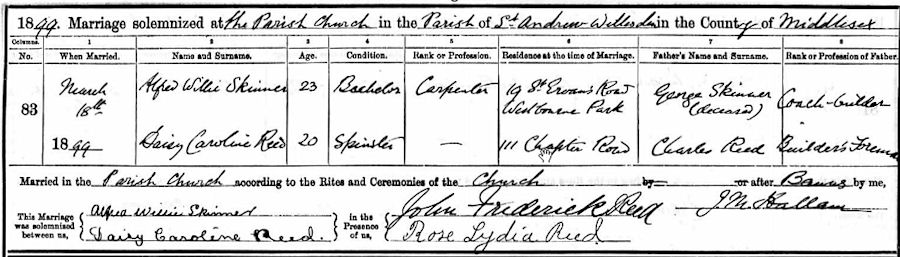 1899. Marriage solemnized at the Parish Church in the Parish of St Andrew Willesden in the County of Middlesex
Columns. 1 2 3 4 5 6 7 8
No. When Married. Name and Surname. Age. Condition. Rank or Profession. Residence at the time of Marriage. Father's Name and Surname. Rank or Profession of Father.
83 March 18th 1899 Alfred Willie Skinner 23 Bachelor Carpenter 19 St Ervans Road Westbourne Park George Skinner (deceased) Coach-builder
Daisy Caroline Reed 20 Spinster — 111 Chapter Road Charles Reed Builder's Foreman
Married in the Parish Church according to the Rites and Ceremonies of the Church by — or after Banns by me,
This Marriage was solemnized between us, Alfred Willie Skinner Daisy Caroline Reed. in the Presence of us, John Frederick Reed Rose Lydia Reed J. M. Hallam